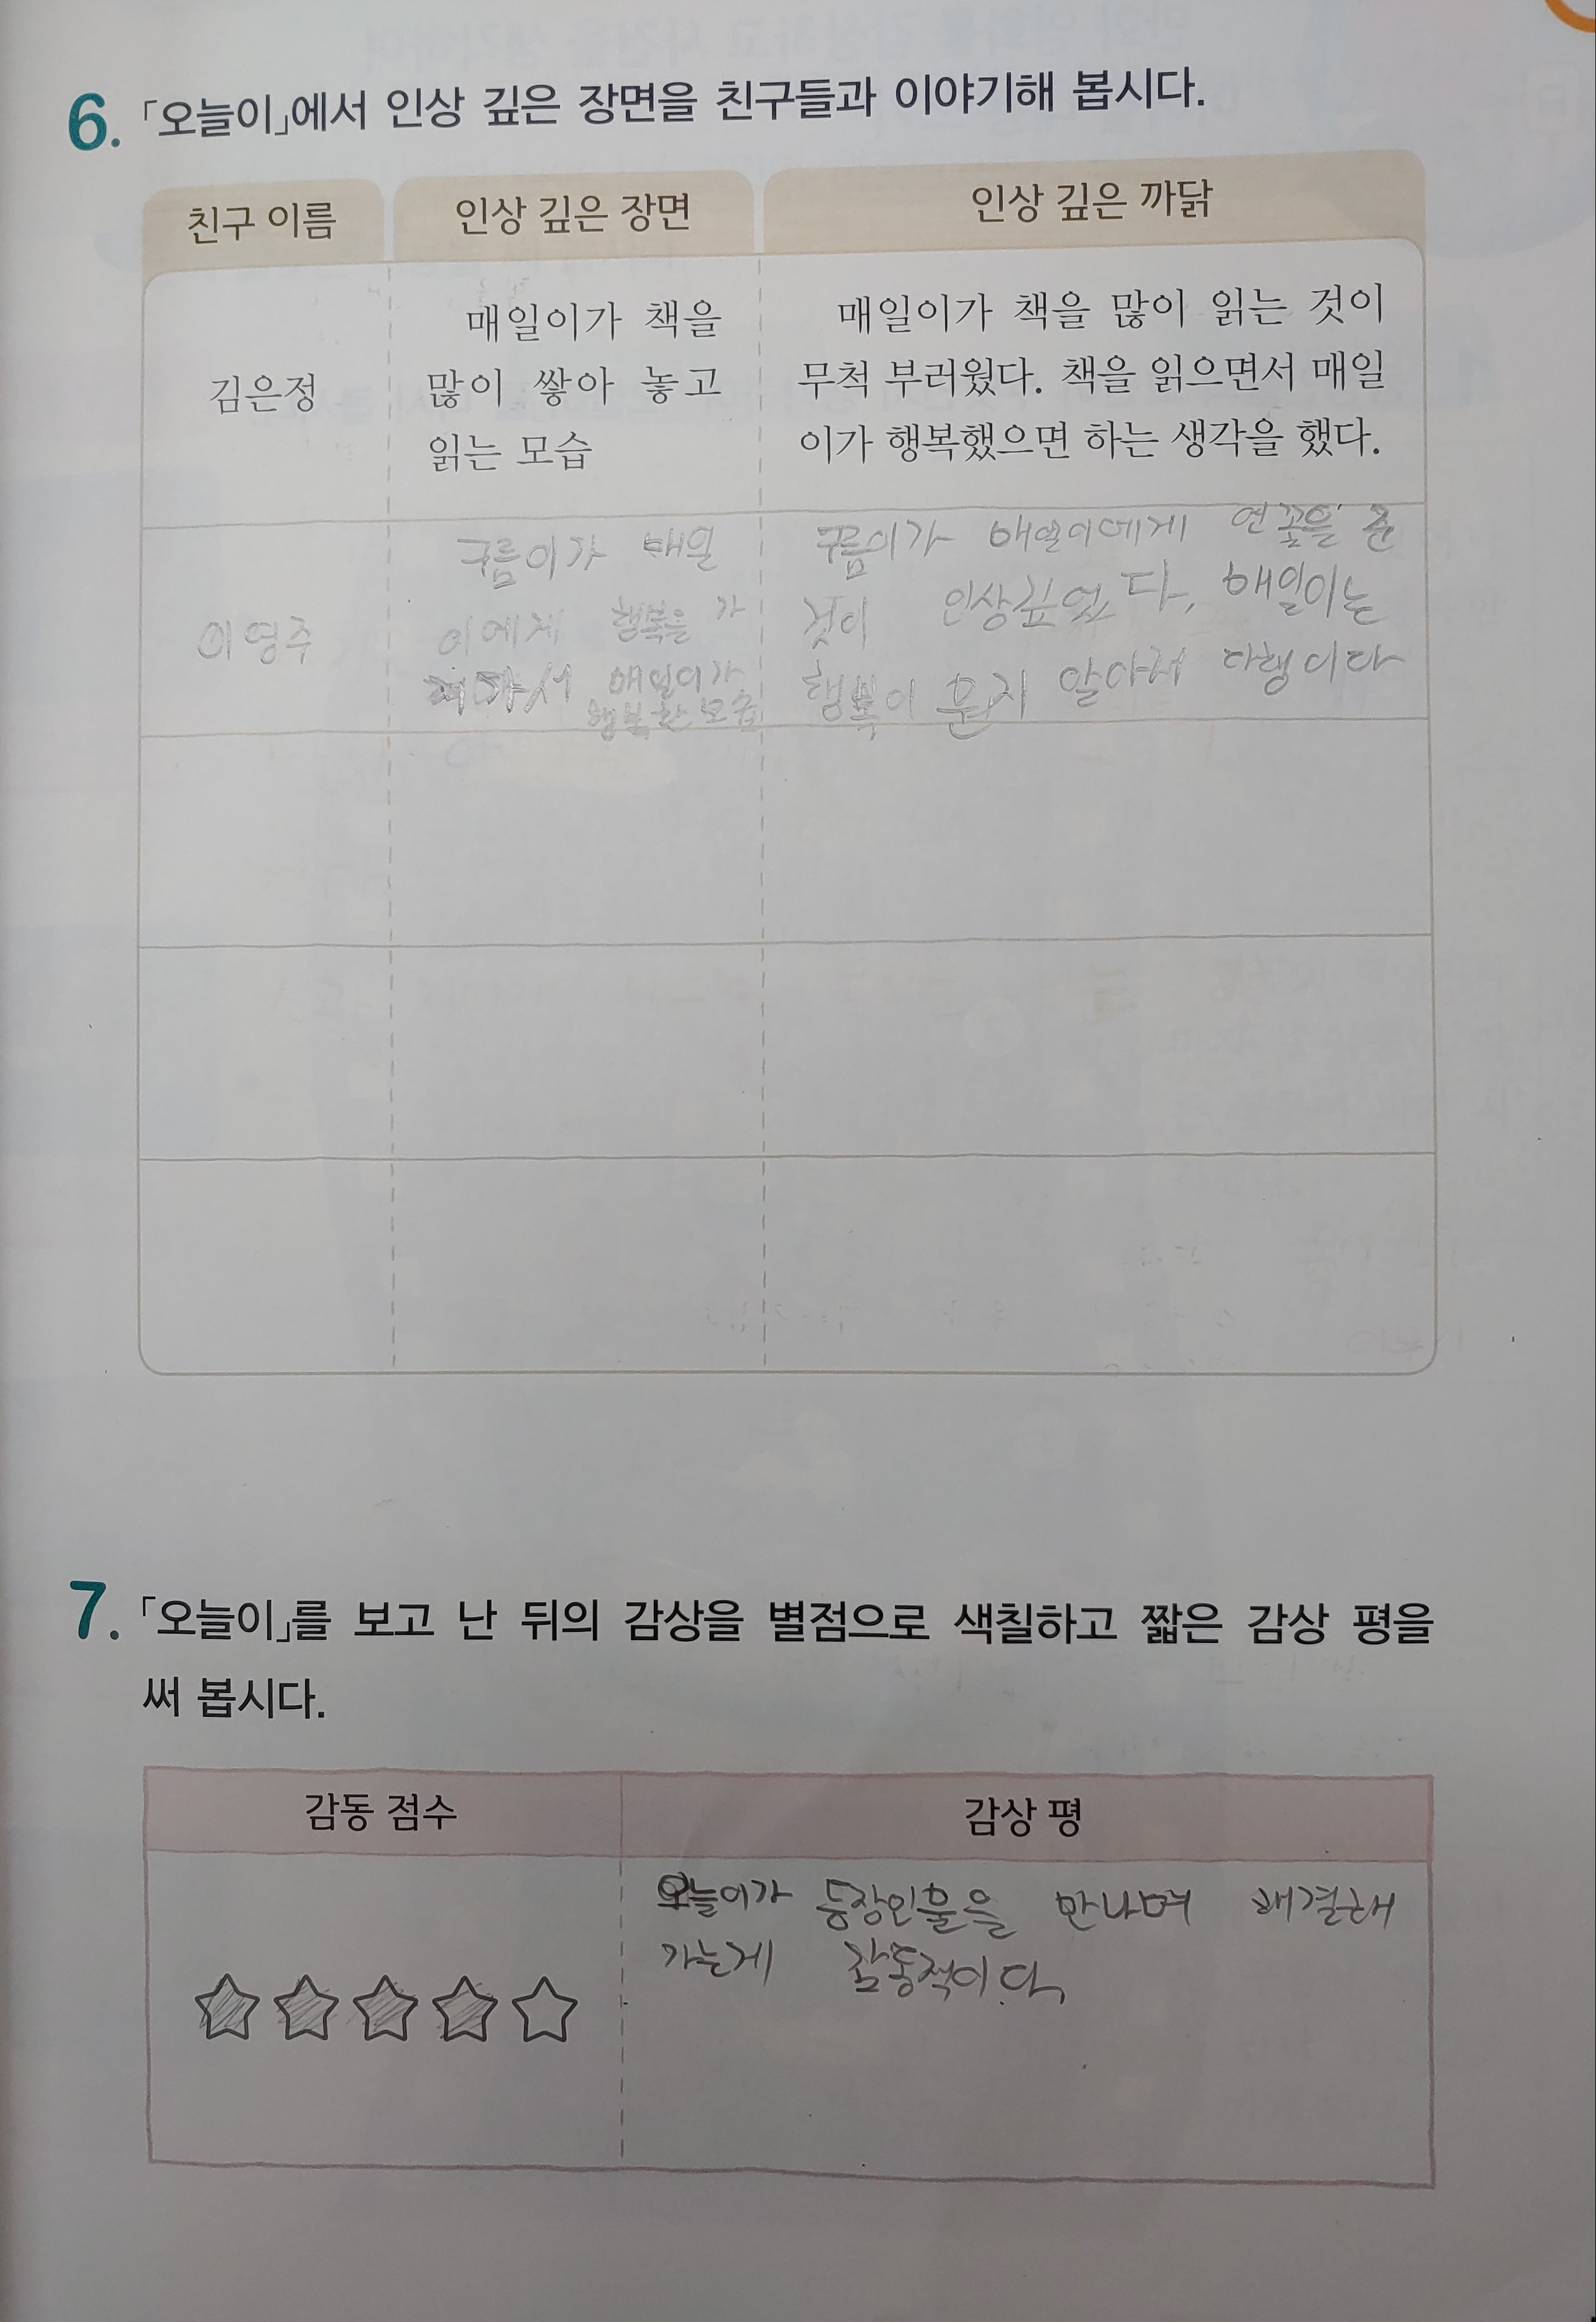 6. 「오늘이」에서 인상 깊은 장면을 친구들과 이야기해 봅시다.
친구 이름
인상 깊은 장면
인상 깊은 까닭
김은정
매일이가 책을
많이 쌓아 놓고
읽는 모습
매일이가 책을 많이 읽는 것이
무척 부러웠다. 책을 읽으면서 매일
이가 행복했으면 하는 생각을 했다.
이영주
구름이가 매일
이에게 행복을 가
매일이가
행복한 모습
구름이가 매일이에게 연꽃을 준
것이 인상깊었다, 매일이는
행복이 뭔지 알아서 다행이다
7. 「오늘이」를 보고 난 뒤의 감상을 별점으로 색칠하고 짧은 감상 평을
써 봅시다.
감동 점수
감상 평
오늘이가 등장인물을 만나며 해결해
가는게 감동적이다,